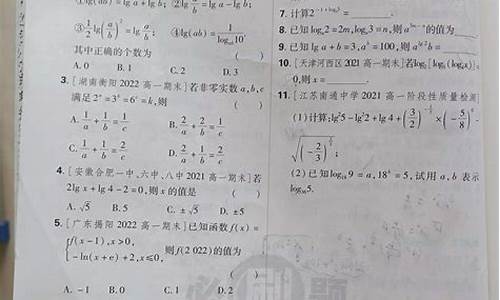 ① lg(ab)=lg a+lg b; ② lg a/b=lg a-lg b;
③ 1/2 lg(a/b)²=lg a/b; ④ lg(ab)=1/log_{ab}10.
其中正确的个数为 ( )
A. 0 B. 1 C. 2 D. 3
3. [湖南衡阳 2022 高一期末]若非零实数 a,b,c
满足 2^a=3^b=6^c=k,则 ( )
A. 1/a+1/b=1/c B. 2/a+2/b=1/c
C. 1/a+1/b=2/c D. 2/a+1/b=2/c
4. [安徽合肥一中、六中、八中 2021 高一期末]若
2lg x+lg 4-2=0,则 x 的值是 ( )
A. √5 B. 5 C. ±√5 D. ±5
5. [广东揭阳 2022 高一期末]已知函数 f(x)=
{f(x-1),x>0,
-ln(x+e)+2,x≤0, 则 f(2 022)的值为
( )
A. -1 B. 0 C. 1 D. 2
7. 计算 2
8. 已知 log_a2=2m,log_a3=n,则 的值为
9. 已知 lg a+b=3,a^b=100,则 a^{lg 2}·b=
10. [天津河西区 2021 高一期末]若 log₂[log₃(log₄x)]=
0,则 x=
11. [江苏南通中学 2021 高一阶段性质量检测]
(1)计算:lg²5-lg²2+lg 4+
(2)已知 log₁₈9=a,18^b=5,试用 a,b 表示
log₃₆5.
必刷题